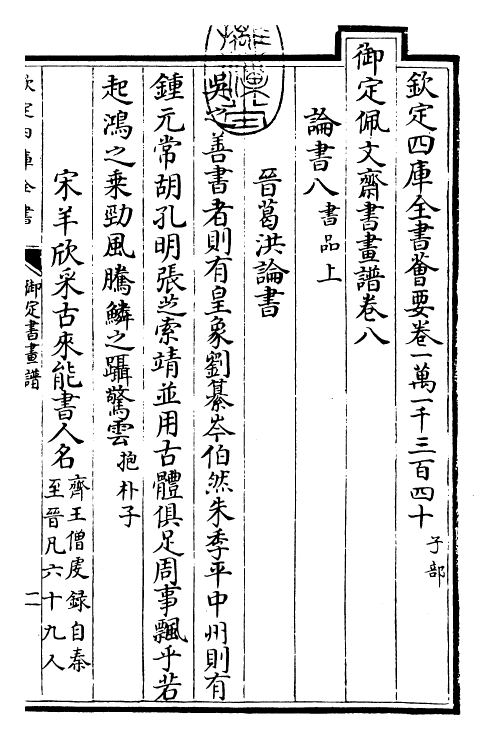 欽定四庫全書薈要卷一萬一千三百四十 子部
御定佩文齋書畫譜卷八
論書八 書品上
晉葛洪論書
吳之善書者則有皇象劉纂岑伯然朱季平中州則有
鍾元常胡孔明張芝索靖並用古體俱足周事飄乎若
起鴻之乗勁風騰鱗之躡驚雲 抱朴子
宋羊欣采古來能書人名 齊王僧虔録自秦
至晉凡六十九人
欽定四庫全書
御定書畫譜